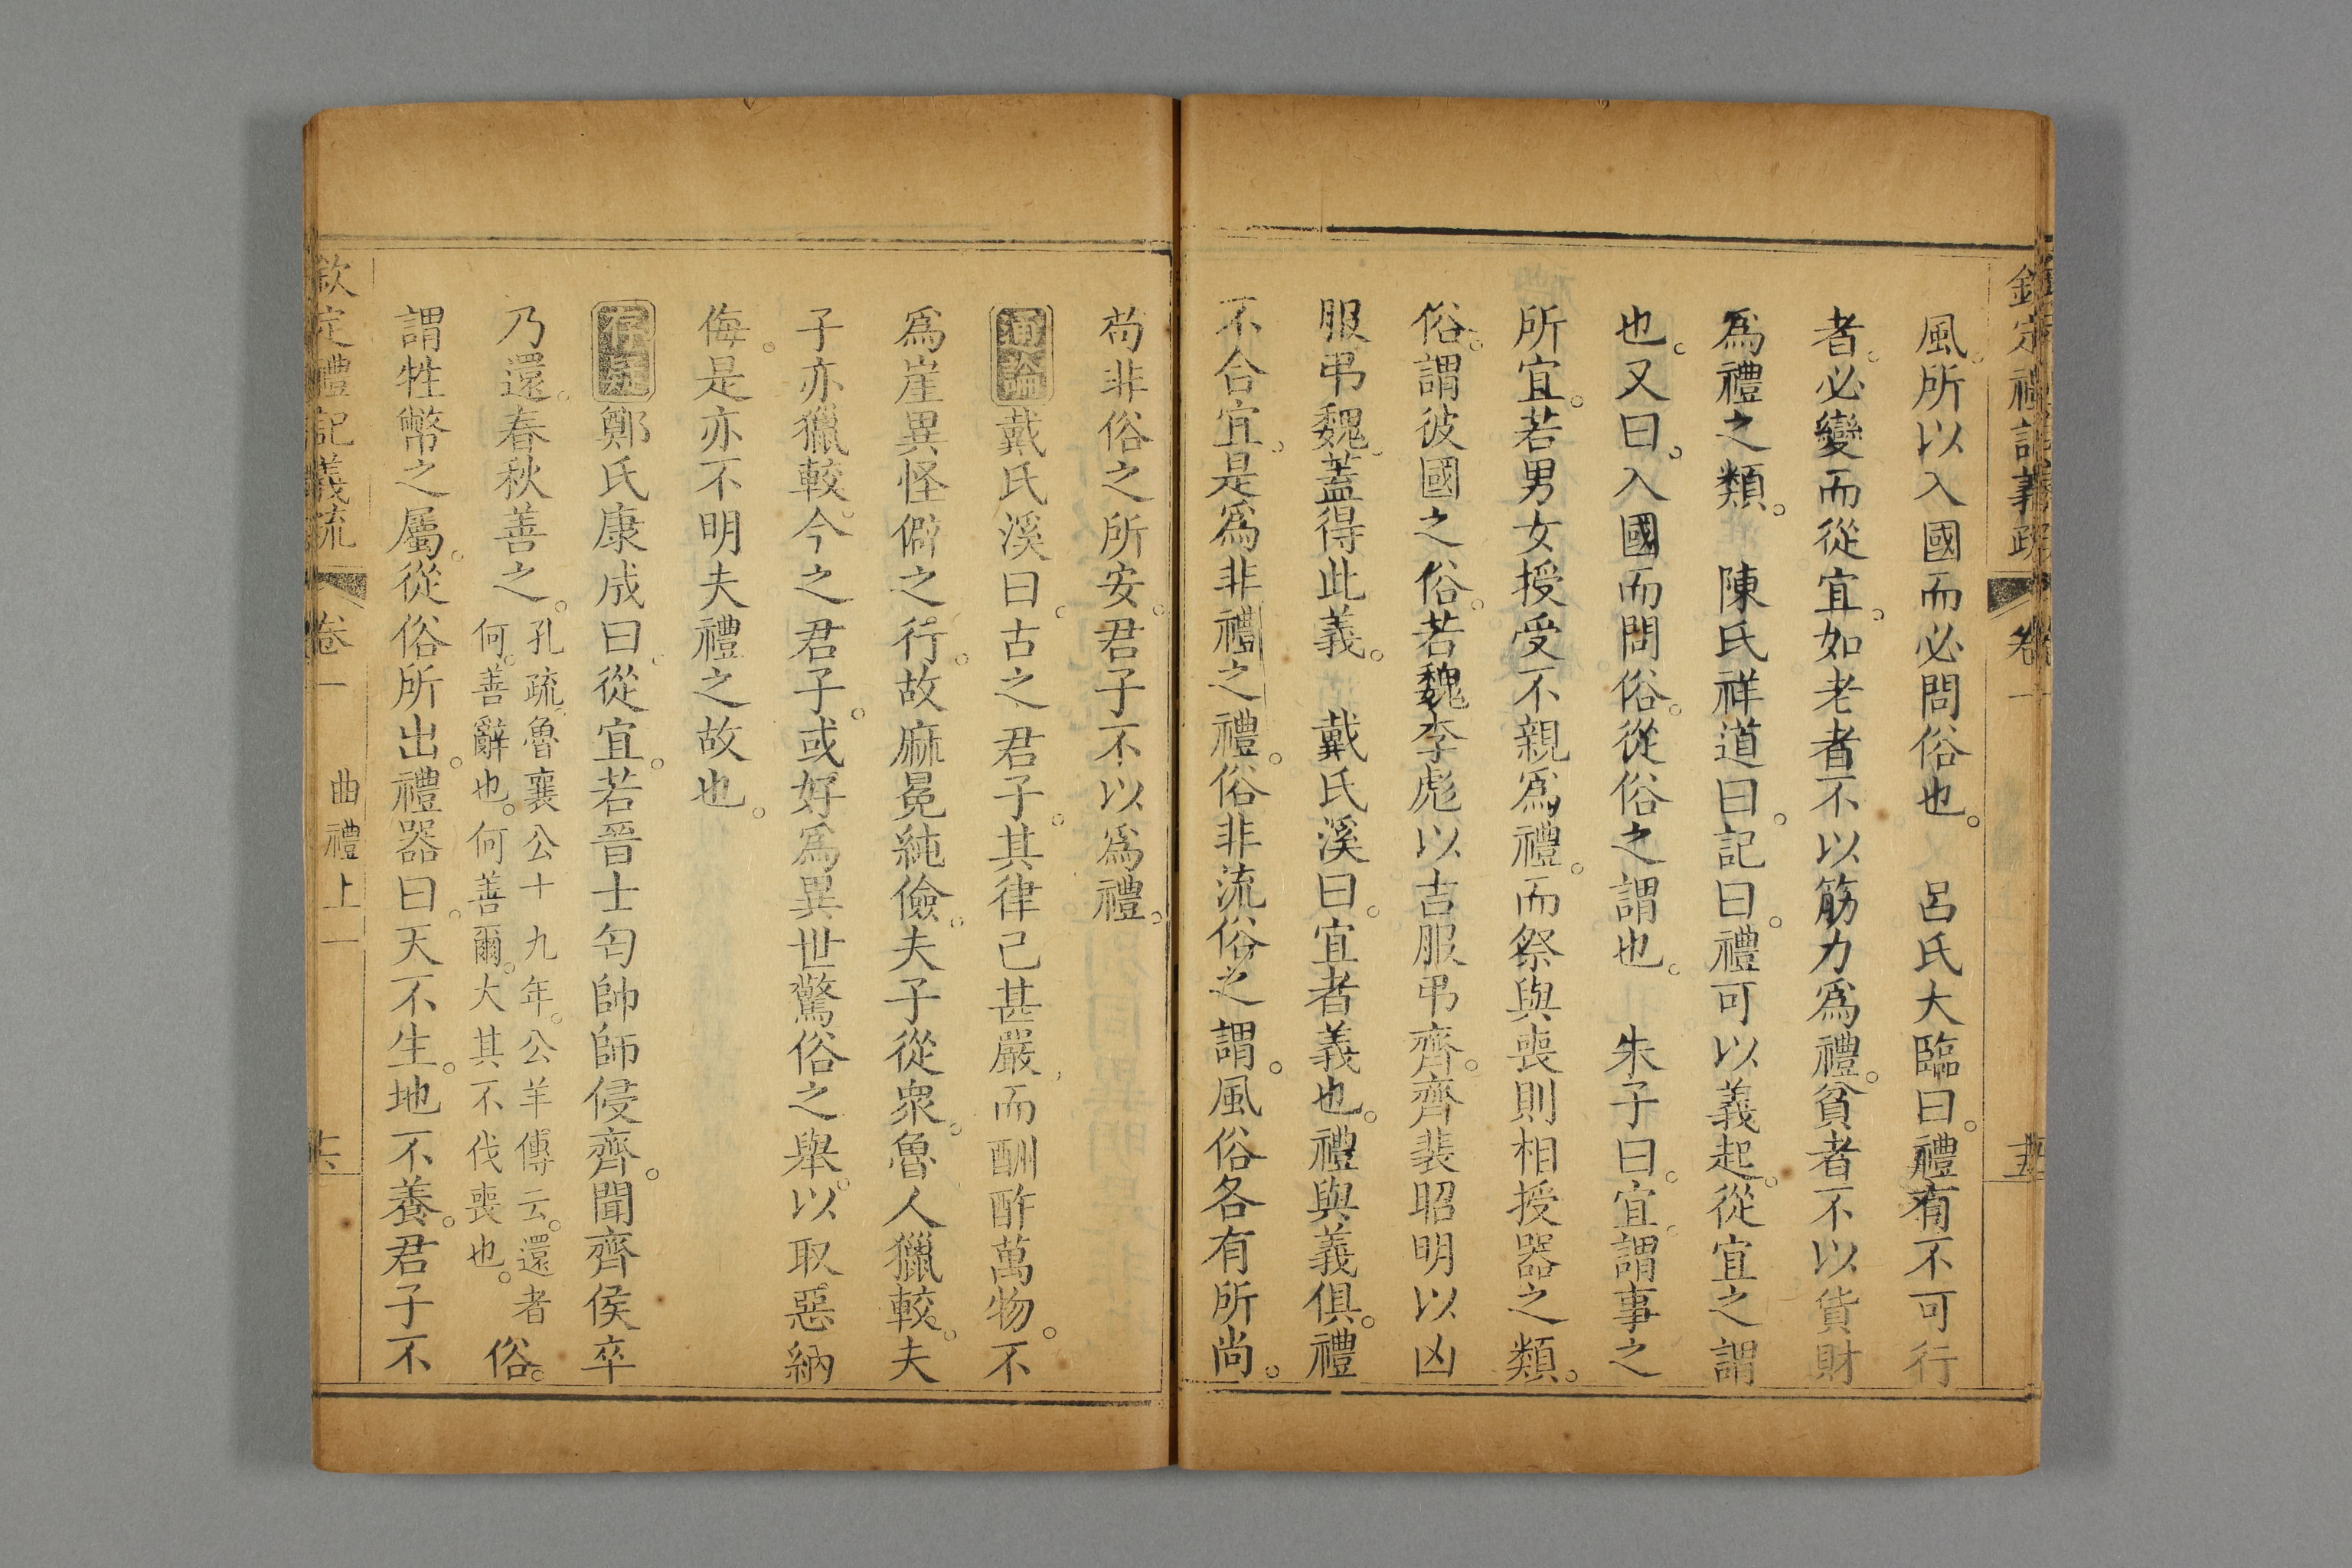 欽定禮記義疏 卷一 五
風。所以入國而必問俗也。 呂氏大臨曰。禮有不可行
者。必變而從宜。如老者不以筋力爲禮。貧者不以貨財
爲禮之類。 陳氏祥道曰。記曰。禮可以義起。從宜之謂
也。又曰。入國而問俗。從俗之謂也。 朱子曰。宜。謂事之
所宜。若男女授受不親爲禮。而祭與喪則相授器之類。
俗。謂彼國之俗。若魏李彪以吉服弔齊。齊裴昭明以凶
服弔魏。蓋得此義。 戴氏溪曰。宜者義也。禮與義俱。禮
不合宜。是爲非禮之禮。俗非流俗之謂。風俗各有所尚。
苟非俗之所安。君子不以爲禮。
通論戴氏溪曰。古之君子。其律己甚嚴。而酬酢萬物。不
爲崖異怪僻之行。故麻冕純儉。夫子從衆。魯人獵較。夫
子亦獵較。今之君子。或好爲異世驚俗之舉。以取惡納
侮。是亦不明夫禮之故也。
存疑鄭氏康成曰。從宜。若晉士匄帥師侵齊。聞齊侯卒
乃還。春秋善之。孔疏。魯襄公十九年。公羊傳云。還者
何。善辭也。何善爾。大其不伐喪也。俗。
謂牲幣之屬。從俗所出。禮器曰。天不生。地不養。君子不
欽定禮記義疏 卷一 曲禮上